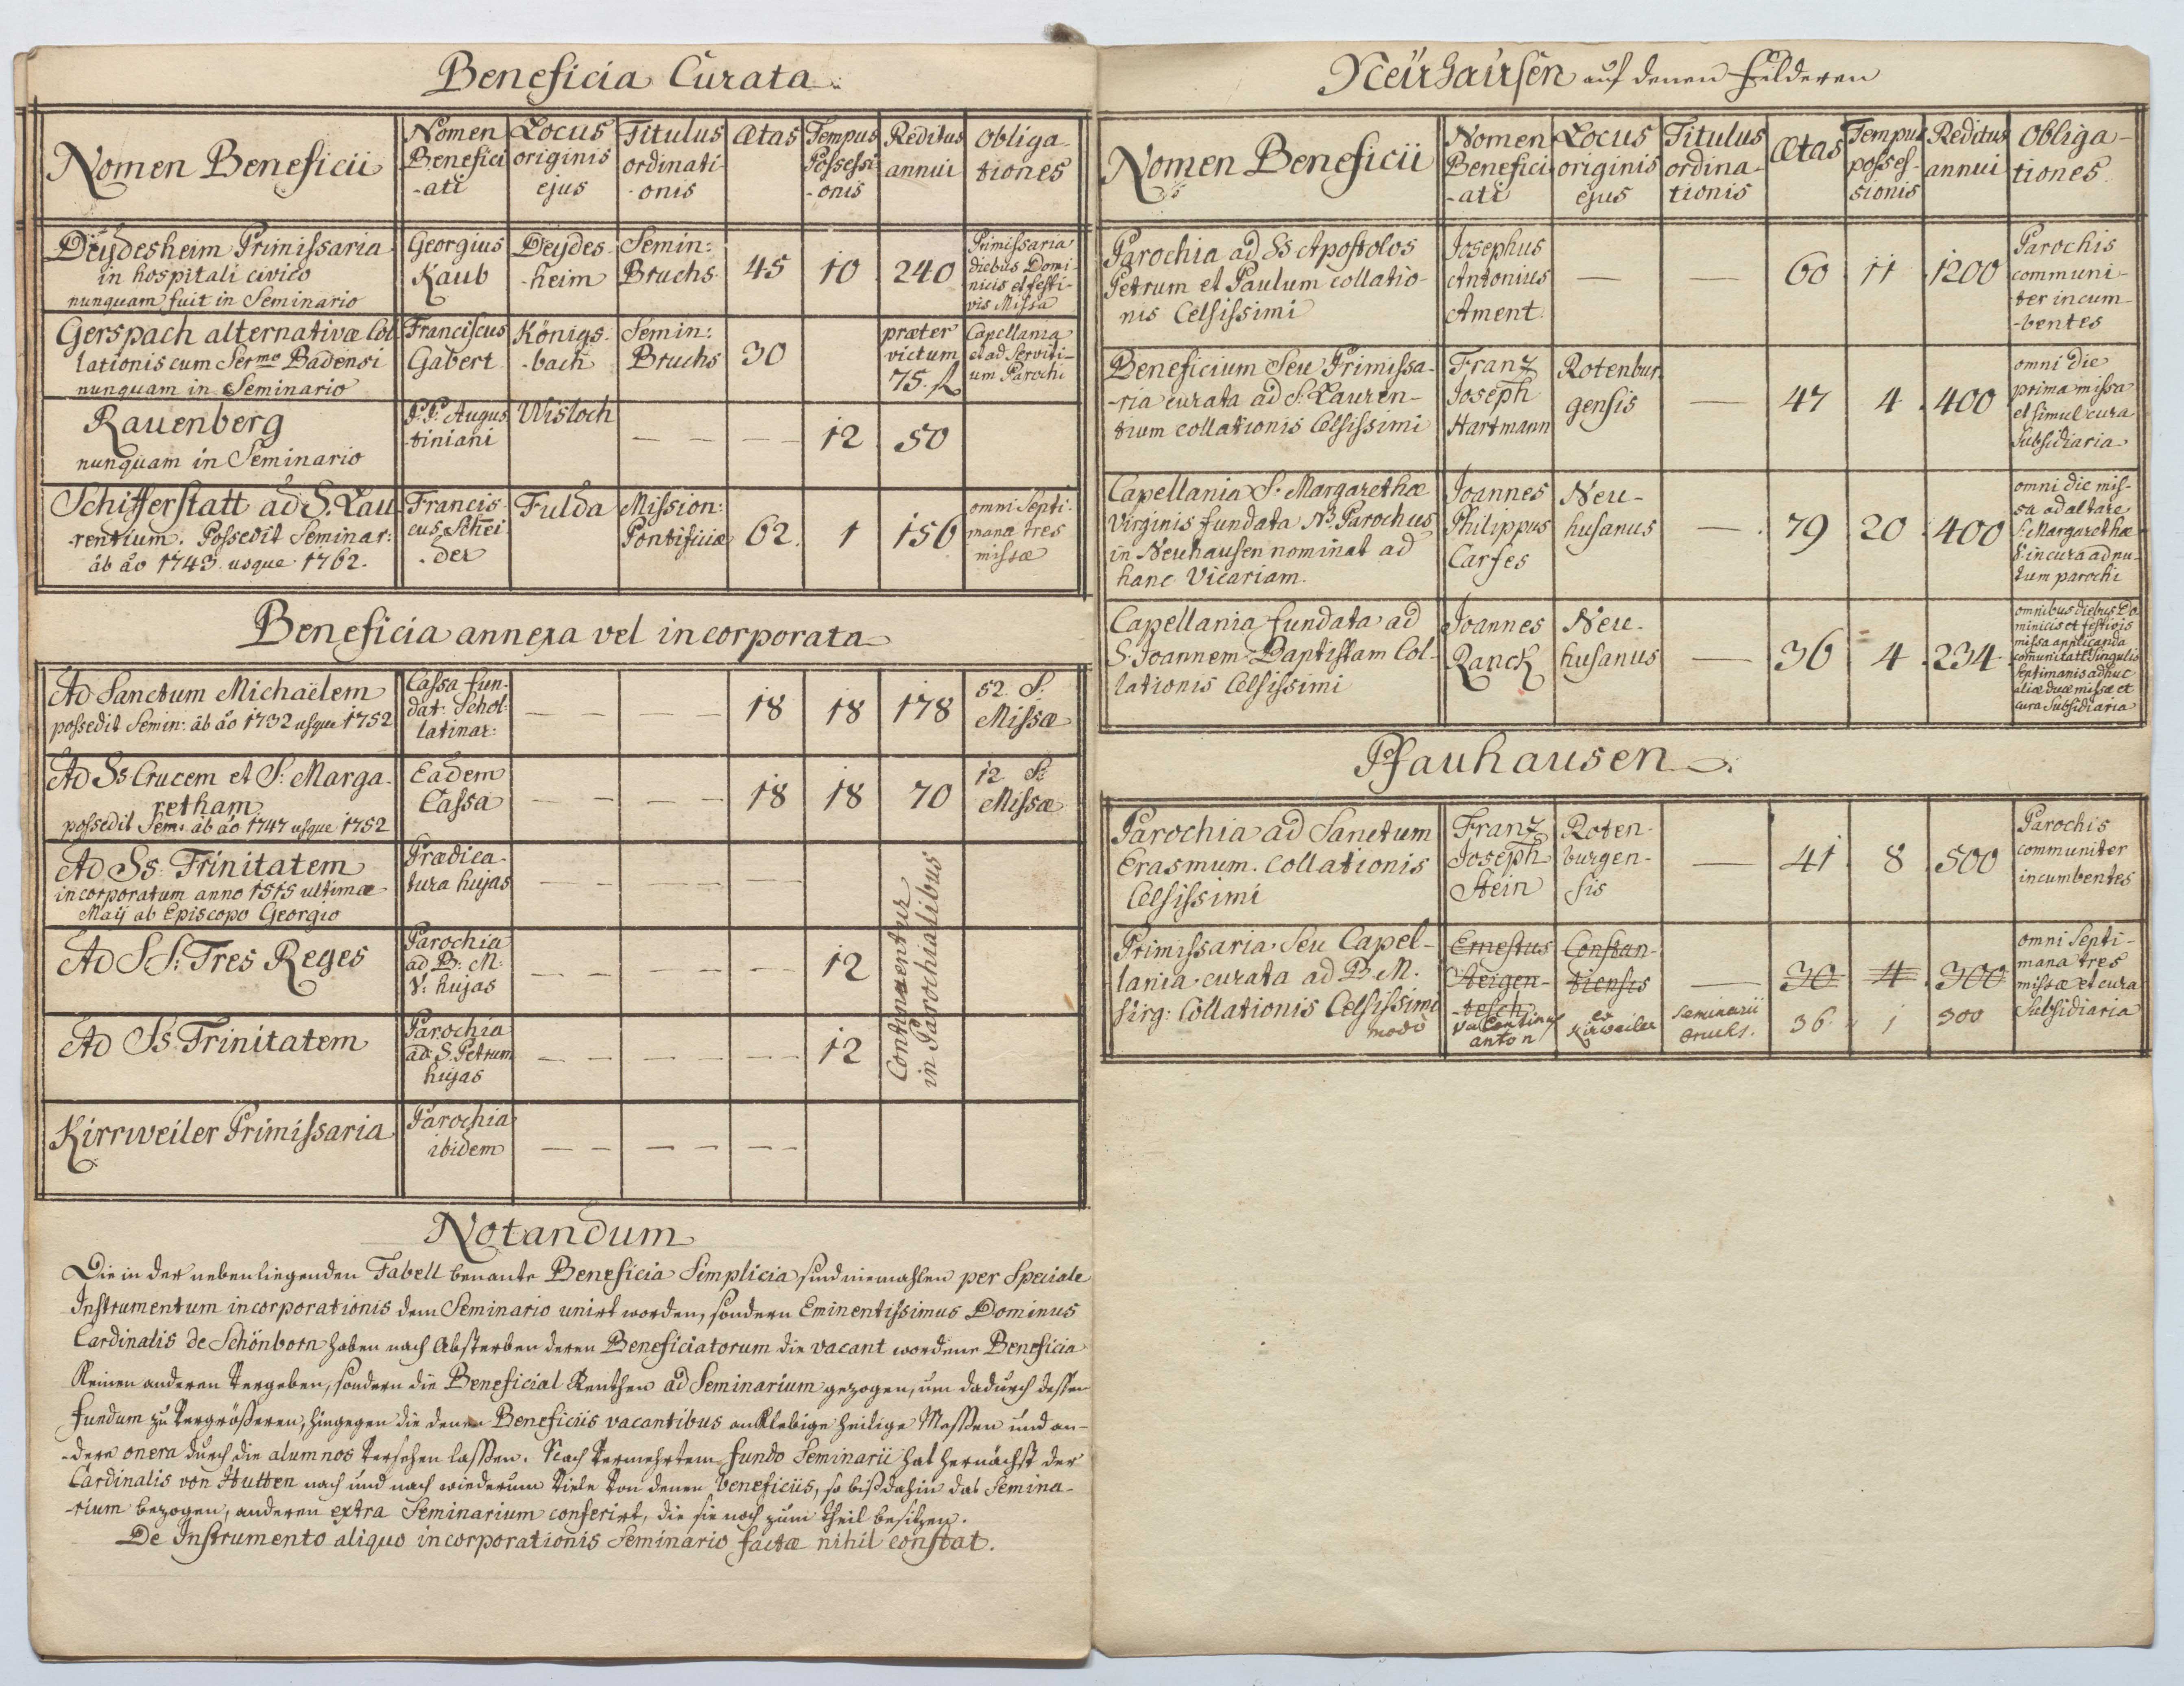 Beneficia Curata
Nomen Beneficii
Nomen
Benefici
-ati
Locus
originis
ejus
Titulus
ordinati
-onis
Ætas
Tempus
Possessi
-onis
Reditus
annui
Obliga-
tiones
Deÿdesheim Primissaria
in hospitali civico
nunquam fuit in Seminario
Georgius
Kaub
Deÿdes-
-heim
Semin:
Bruchs.
45
10
240
Primissaria
diebus Domi-
nicis et festi-
vis Missa
Gerspach alternativæ Col
lationis cum Sermo Badensi
nunquam in Seminario
Franciscus
Gabert
Königs-
-bach
Semin:
Bruchs
30
præter
victum
75. fl
Capellania
et ad Serviti-
um Parochi
Rauenberg
nunquam in Seminario
P.P. Augus
-tiniani
Wisloch
12
50
Schifferstatt ad S. Lau
-rentium. Possedit Seminar:
ab ao 1743. usque 1762.
Francis
cus Schei
-der
Fulda
Mission:
Pontificiæ
62.
1
156
omni Septi-
mana tres
missæ
Beneficia annexa vel incorporata
Ad Sanctum Michaëlem
possedit Semin: ab ao 1732 usque 1752
Cassa fun-
dat: Schol:
latinar:
18
18
178
52 S:
Missæ
Ad Ss Crucem et S: Marga-
retham
possedit Sem: ab ao 1747 usque 1752
Eadem
Cassa
18
18
70
12 S:
Missæ
Ad Ss: Trinitatem
incorporatum anno 1515 ultimæ
Maij ab Episcopo Georgio
Prædica-
tura hujas
Continentur
in Parochialibus
Ad SS: Tres Reges
Parochia
ad B: M:
V: hujas
12
Ad Ss Trinitatem
Parochia
ad S. Petrum
hujas
12
Kirrweiler Primissaria
Parochia
ibidem
Notandum
Die in der nebenliegenden Tabell benante Beneficia Simplicia sind niemahlen per Speciale
Instrumentum incorporationis dem Seminario unirt worden, sondern Eminentissimus Dominus
Cardinalis de Schönborn haben nach Absterben deren Beneficiatorum die vacant wordene Beneficia
Keinen anderen vergeben, sondern die Beneficial Renthen ad Seminarium gezogen, um dadurch dessen
fundum zu vergrößeren, hingegen die denen Beneficiis vacantibus anklebige heilige Messen und an-
-dere onera durch die alumnos versehen lassen. Nach vermehrtem fundo Seminarii hat hernächst der
Cardinalis von Hutten nach und nach wiederum viele von denen beneficiis, so biß dahin das Semina-
-rium bezogen, anderen extra Seminarium conferirt, die sie noch zum theil besitzen.
De Instrumento aliquo incorporationis Seminario factæ nihil constat.
Neühaüsen auf denen Filderen
Nomen Beneficii
Nomen
Benefici
-ati
Locus
originis
ejus
Titulus
ordina-
tionis
Ætas
Tempus
posses-
sionis
Reditus
annui
Obliga-
tiones
Parochia ad Ss Apostolos
Petrum et Paulum collatio-
nis Celsissimi
Josephus
Antonius
Ament
60
11
1200
Parochis
communi-
ter incum-
-bentes
Beneficium Seu Primissa-
-ria curata ad S. Lauren-
tium collationis Celsissimi
Franz
Joseph
Hartmann
Rotenbur
gensis
47
4
400
omni die
prima missa
et simul cura
Subsidiaria
Capellania S. Margarethæ
Virginis fundata NB. Parochus
in Neuhausen nominat ad
hanc Vicariam.
Joannes
Philippus
Carfes
Neu-
husanus
79
20
400
omni die mis-
sa ad altare
S. Margarethæ
V. in cura ad nu-
tum parochi
Capellania fundata ad
S. Joannem Baptistam Col-
lationis Celsissimi
Joannes
Ranck
Neu-
husanus
36
4
234
omnibus diebus Do-
minicis et festivis
missa applicanda
comunitati Singulis
Septimanis adhuc
aliæ duæ missæ et
cura Subsidiaria
Pfauhausen
Parochia ad Sanctum
Erasmum. Collationis
Celsissimi
Franz
Joseph
Stein
Roten-
burgen-
sis
41
8
500
Parochis
communiter
incumbentes
Primissaria Seu Capel-
lania curata ad B.M.
Virg: Collationis Celsissimi
modò
Ernestus
Steigen-
tesch
Valentinus
anton
Constan-
tiensis
ex
Kirweiler
Seminarii
Bruchs.
30
36
4
1
300
300
omni Septi-
mana tres
missæ et cura
Subsidiaria